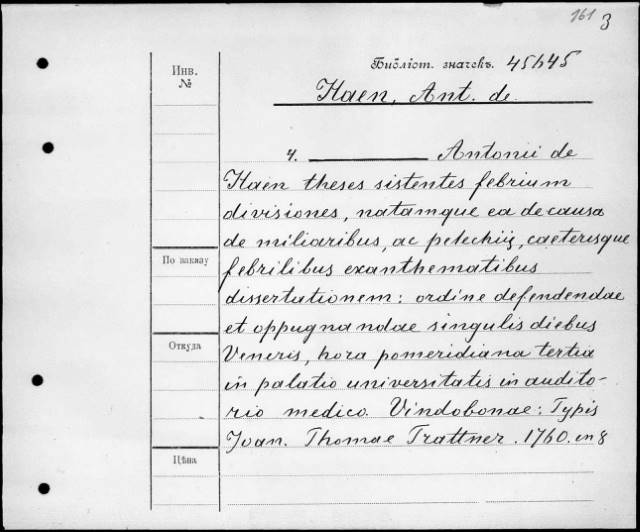 161 3
Библіот. значекъ. 45645
Инв.
№
Haen, Ant. de
4. Antonii de
Haen theses sistentes febrium
divisiones, natamque ea de causa
de miliaribus, ac petechiis, caeterisque
По заказу
febrilibus exanthematibus
dissertationem: ordine defendendae
et oppugnandae singulis diebus
Откуда
Veneris, hora pomeridiana tertia
in palatio universitatis in audito-
rio medico. Vindobonae: Typis
Joan. Thomae Trattner. 1760. in 8
Цѣна